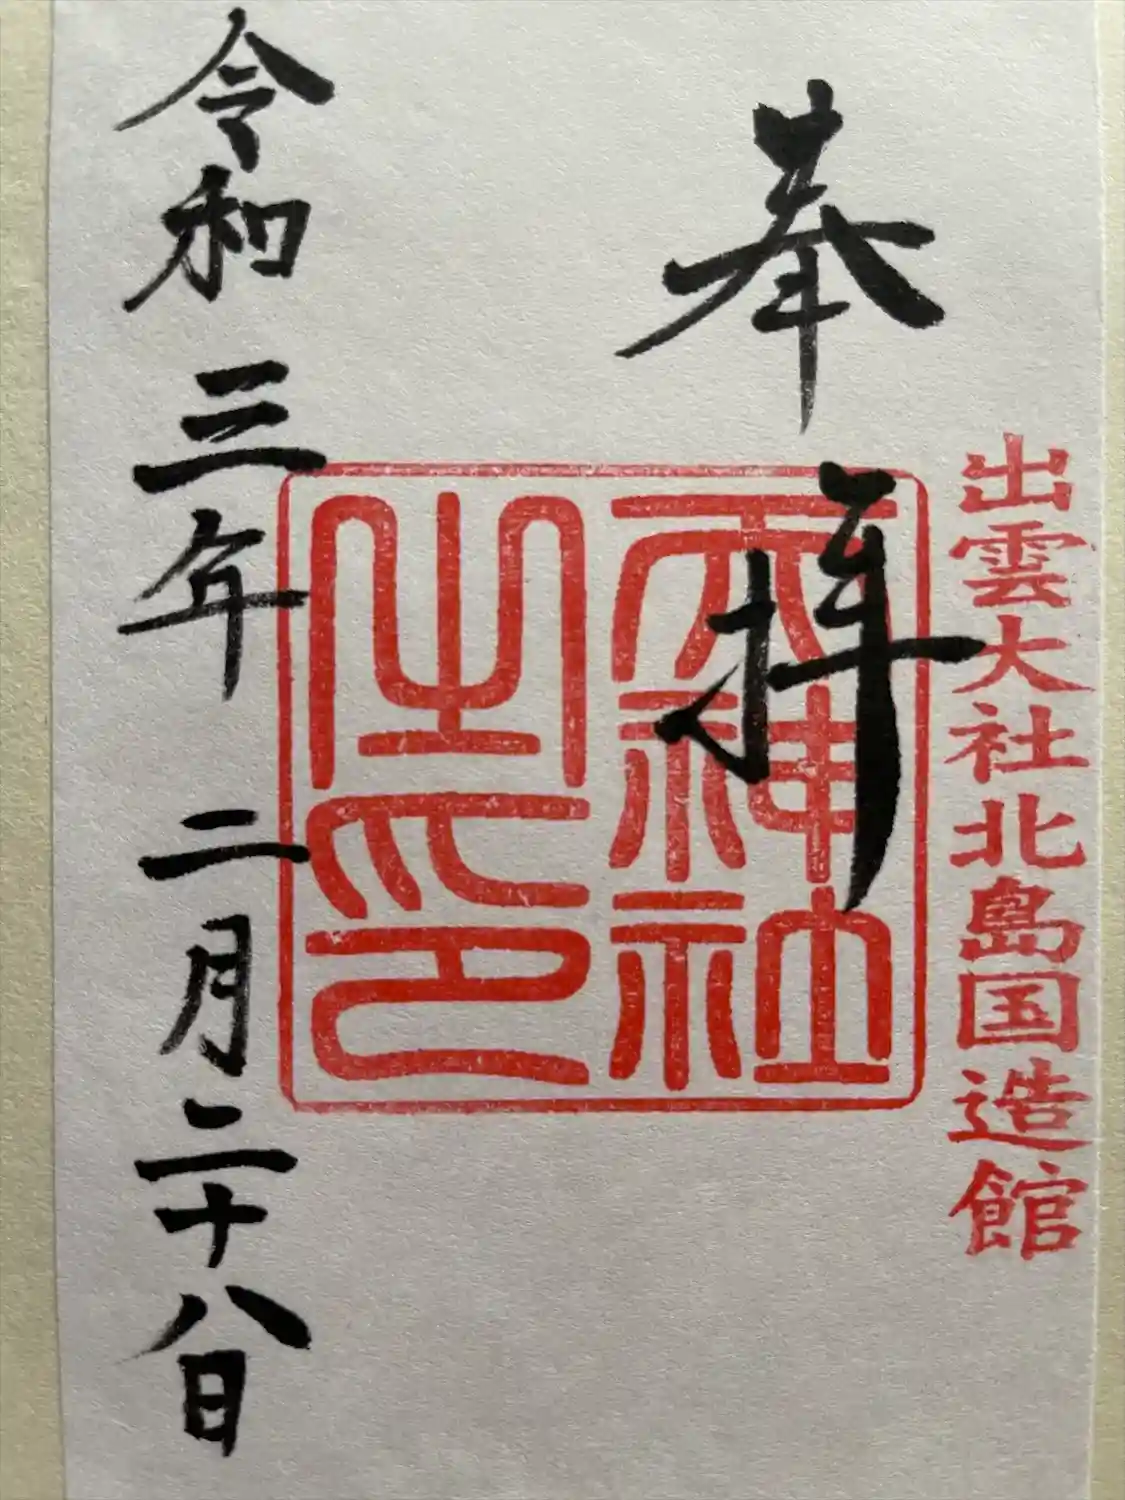 出雲大社北島国造館
奉拝
天神社
之印
令和三年二月二十八日